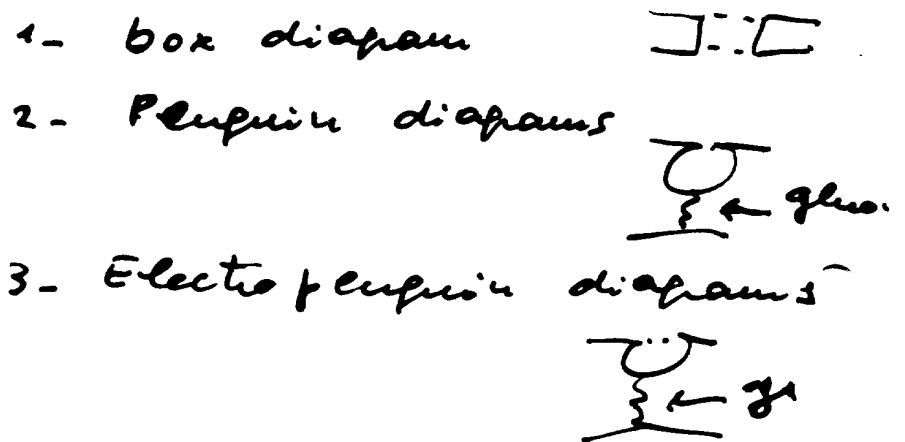 1- box diagram
2- Penguin diagrams
3- Electropenguin diagrams